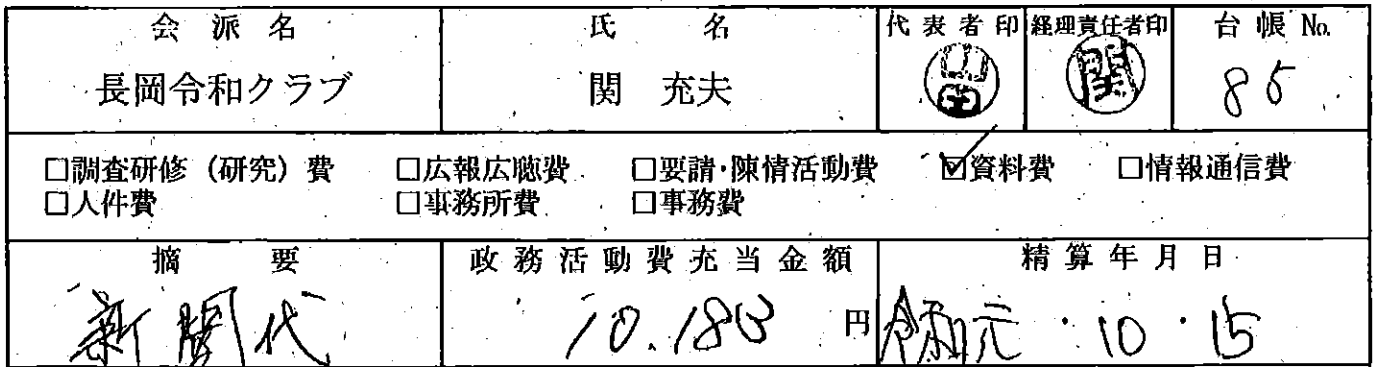 会派名 氏名 代表者印 経理責任者印 台帳No.
長岡令和クラブ 関 充夫 関 85
□調査研修（研究）費 □広報広聴費 □要請・陳情活動費 ☑資料費 □情報通信費
□人件費 □事務所費 □事務費
摘要 政務活動費充当金額 精算年月日
新聞代 円 令和元・10・15